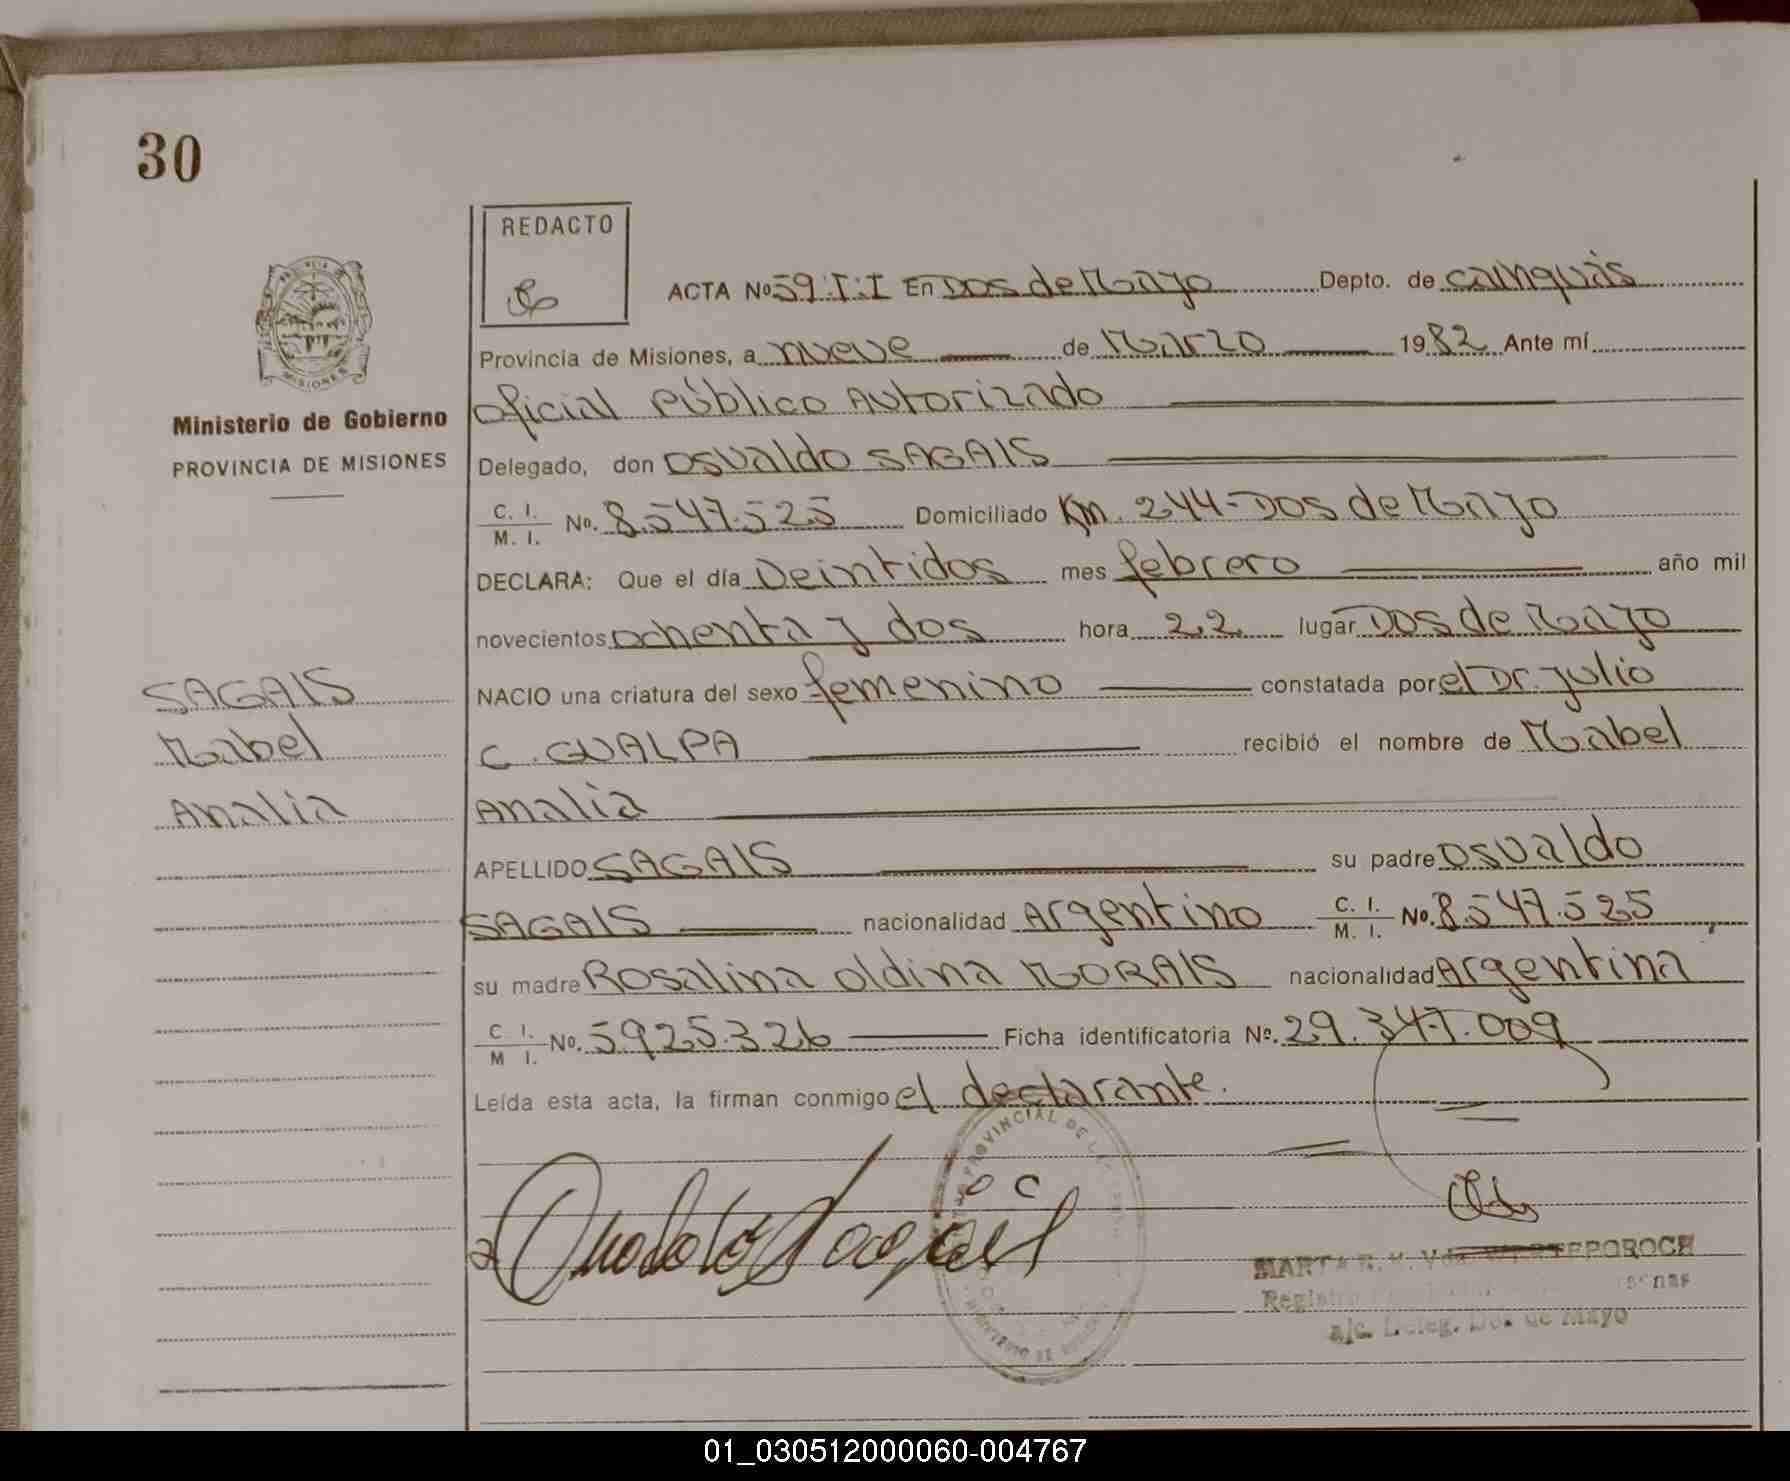 30
REDACTO
ACTA Nº 59:I:I En Dos de Mayo Depto. de cainguás
Provincia de Misiones, a nueve de Marzo 1982 Ante mí
Ministerio de Gobierno
PROVINCIA DE MISIONES
oficial Público Autorizado
Delegado, don Osvaldo SAGAIS
C. I. / M. I. No. 8.547.525 Domiciliado Km. 244-Dos de Mayo
DECLARA: Que el día Veintidos mes febrero año mil
novecientos ochenta y dos hora 22 lugar Dos de Mayo
SAGAIS
Mabel
Analia
NACIO una criatura del sexo femenino constatada por el Dr. Julio
C. GUALPA recibió el nombre de Mabel
Analia
APELLIDO SAGAIS su padre Osvaldo
SAGAIS nacionalidad Argentino C. I. / M. I. No. 8.547.525
su madre Rosalina Oldina MORAIS nacionalidad Argentina
C I. / M I. No. 5.925.326 Ficha identificatoria Nº. 29.347.009
Leída esta acta, la firman conmigo el declarante.
PROVINCIAL DE
MARTA Vda.
a/c. Deleg. Dos de Mayo
01_030512000060-004767